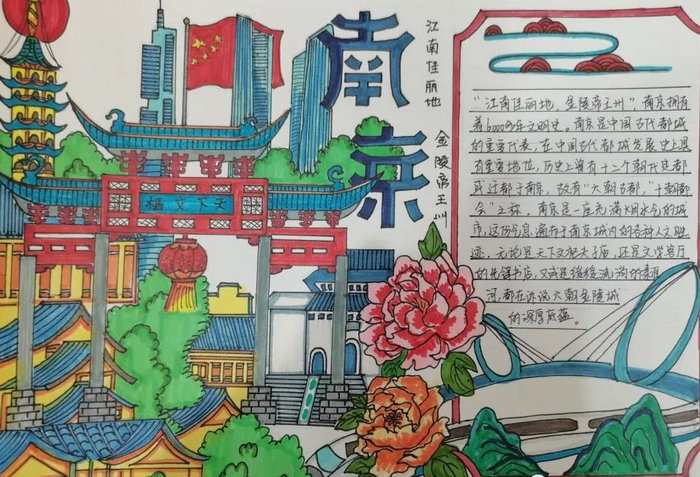 南京
江南佳丽地
金陵帝王州
天下文枢
"江南佳丽地，金陵帝王州"，南京拥有
着6000多年文明史。南京是中国古代都城
的重要代表，在中国古代都城发展史上具
有重要地位，历史上曾有十二个朝代建都
或迁都于南京，故有"六朝古都"，"十朝都
会"之称。南京是一座充满烟水气的城
市，这份气息遍布于南京城内的各种人文胜
迹，无论是天下文枢夫子庙，还是文学客厅
的先锋书店，又或是缓缓流淌的秦淮
河，都在诉说六朝金陵城
的深厚底蕴。